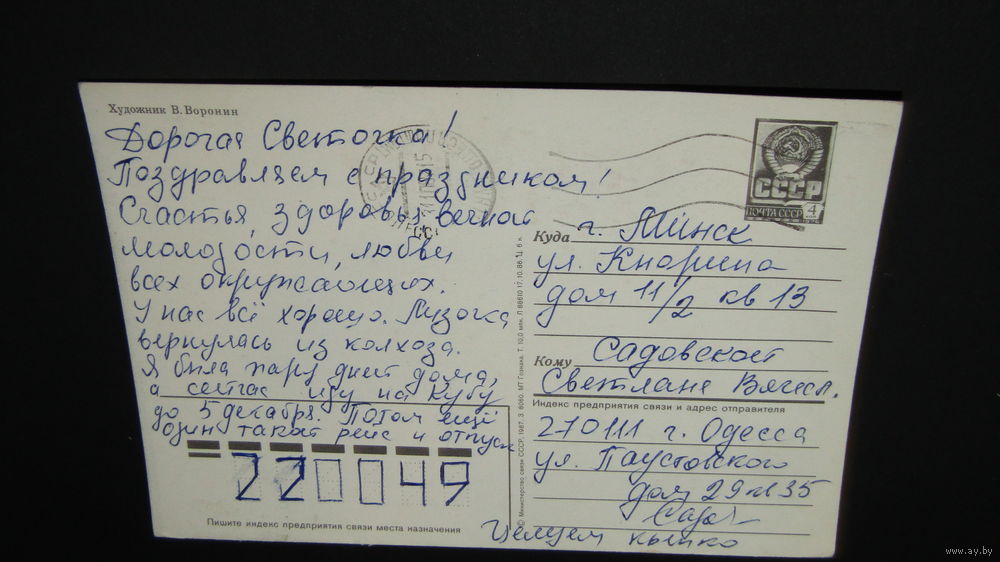 Художник В. Воронин
Дорогая Светочка!
Поздравляем с праздником!
Счастья, здоровья, вечной
молодости, любви
всех окружающих.
У нас всё хорошо. Музочка
вернулась из колхоза.
Я была пару дней дома,
а сейчас иду на Кубу
до 5 декабря. Потом ещё
один такой рейс и отпуск
220049
Пишите индекс предприятия связи места назначения
© Министерство связи СССР, 1987.
СССР
ПОЧТА СССР
4
Куда г. Минск
ул. Кнорина
дом 11/2 кв 13
Кому Садовской
Светлане Вячесл.
Индекс предприятия связи и адрес отправителя
270111 г. Одесса
ул. Паустовского
дом 29 кв 35
Целуем крепко
www.ay.by